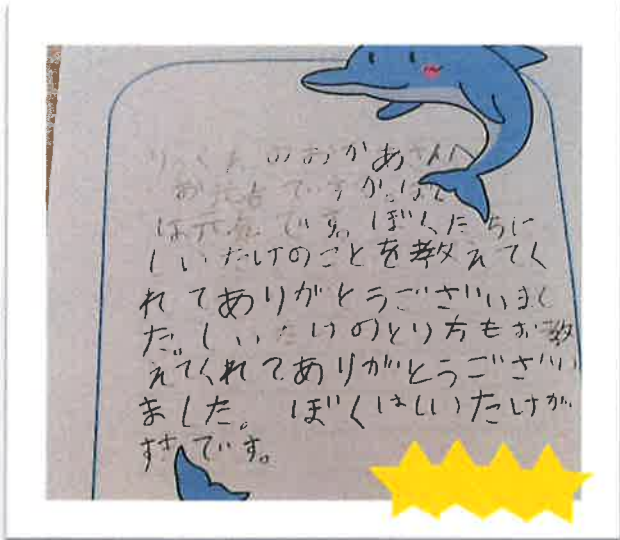 のおかあさんへ
お元気ですか。ぼく
は元気です。ぼくたちに
しいたけのことを教えてく
れてありがとうございまし
た。しいたけのとり方もお教
えてくれてありがとうござい
ました。ぼくはしいたけが
すきです。